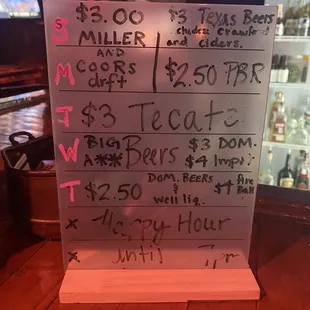 S $3.00 $3 Texas Beers
MILLER
AND and ciders.
M COORS $2.50 PBR
drft
T $3 Tecate
W BIG Beers $3 DOM.
A** $4 Impr
T $2.50 DOM. BEERS $4
& well liq.
x Happy Hour
x until 7pm